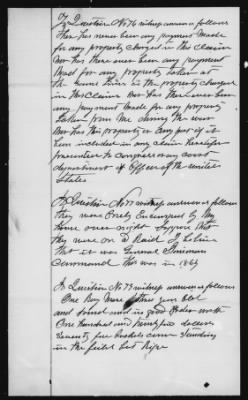 To Question No 76 witness answers as follows
There has never been any payment made
for any property charged in this claim
Nor has there ever been any payment
made for any property taken at
the same time as the property charged
in this claim Nor has there ever been
any payment made for any property
taken from me during the war
Nor has this property or any part of it
been included in any claim heretofore
presented to congress or any court
department or officer of the united
States
To Question No 77 witness answers as follows
they were only Encamped by My
house over night I suppose that
they were on a Raid I believe
that it was General
command this was in 1864
To Question No 78 witness answers as follows
One Bay Mare years old
and sound and in good order worth
One Hundred and twenty five dollars
Seventy five bushels corn standing
in the field but Ripe